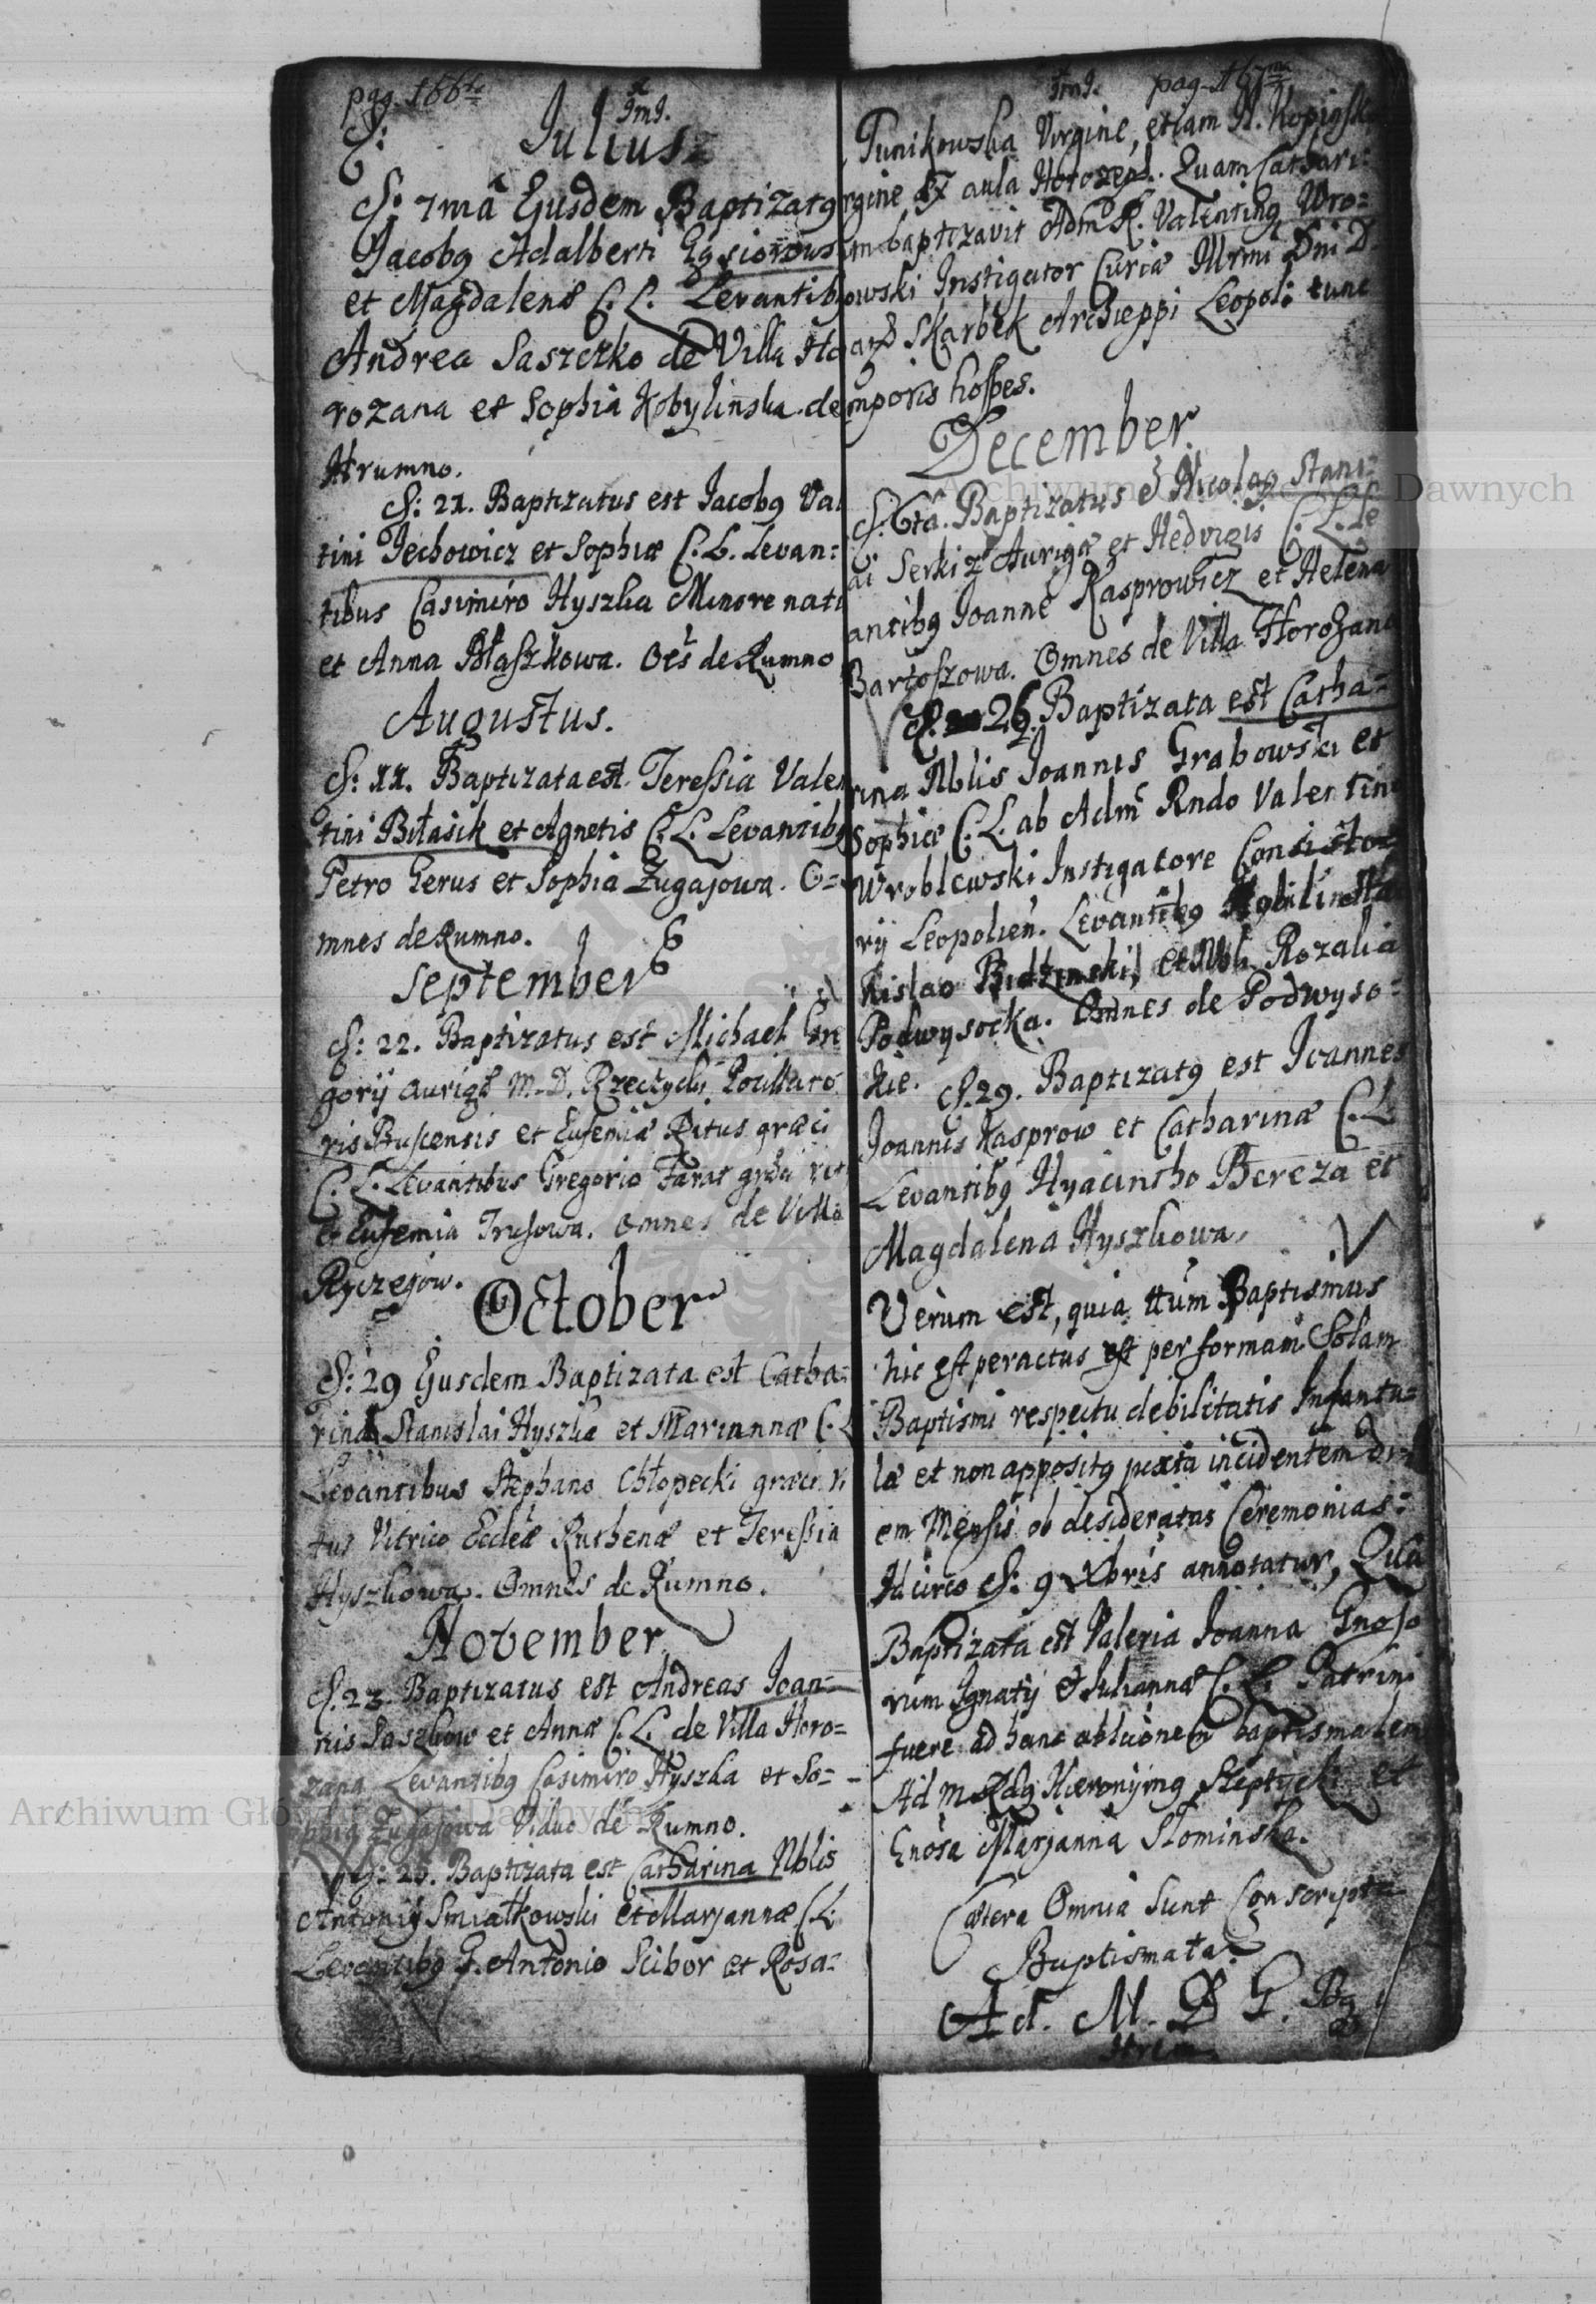 pag. 166ta
Jmj.
Julius
d: 7mâ Ejusdem Baptizatq
Jacobq Adalberti Gąsiorows
et Magdalenæ C. L. Levantibq
Andrea Saszczko de Villa Ho
rozana et Sophia Kobylinska de
Hrumno.
d: 21. Baptizatus est Jacobq Val
tini Jechowicz et Sophiæ C. L. Levan=
tibus Casimiro Hyszka Minore natu
et Anna Błaszkowa. Oes de Rumno
Augustus.
d: 11. Baptizata est Teressia Valen
tini Biłasik et Agnetis C. L. Levantibq
Petro Gerus et Sophia Zugajowa. O=
mnes de Rumno.
September
d: 22. Baptizatus est Michael Gre
gorij aurigæ M. D. Rzeczycki
ris Buscensis et Eufemiæ Ritus græci
C. L. Levantibus Gregorio Tarat græci rit
et Eufemia Trusowa. Omnes de Villa
Ryczejow.
October
d: 29 Ejusdem Baptizata est Catha=
rina Stanislai Hyszka et Mariannæ C. L
Levantibus Stephano Chłopecki græci ri
tus Vitrico Ecclæ Ruthenæ et Teressia
Hyszkowa. Omnes de Rumno.
November
d. 23. Baptizatus est Andreas Joan=
nis Saszkow et Annæ C. L. de Villa Horo=
zana Levantibq Casimiro Hyszka et So=
phia Zugajowa Vidua de Rumno.
d: 25. Baptizata est Catharina Nblis
Antonij Smiałkowski et Marjannæ C. L.
Levantibq G. Antonio Scibor et Rosa=
Jmj. pag. 167ma
Tunikowska Virgine, etiam N. Kopinsk
rgine ex aula Horozep. Quam Cathari=
m baptizavit Adm R. Valentinq Wro=
owski Instigator Curiæ Illrmi Dni D.
Skarbek Archieppi Leopol: tunc
mporis hospes.
December
d: 6ta. Baptizatus ẽ Nicolaq Stani=
ai Serkiz Aurigæ et Hedvigis C. L. Le
antibq Joanne Kasprowicz et Helena
Bartoszowa. Omnes de Villa Horozana
d. 26. Baptizata est Catha=
rina Nblis Joannis Grabowski et
Sophiæ C. L. ab Adm Rndo Valentin
Wroblewski Instigatore Consisto
rij Leopolien. Levantibq
nislao Budzinski, et Nbli Rozalia
Podwysocka. Omnes de Podwyso=
kie. d. 29. Baptizatq est Joannes
Joannis Kasprow et Catharinæ C. L.
Levantibq Hyacintho Bereza et
Magdalena Hyszkowa.
Verum est, quia ttum Baptismus
hic est peractus est per formam Solam
Baptismi respectu debilitatis Infantu=
læ et non appositq juxta incidentem di
em Mensis ob desideratas Ceremonias:
Idcirco d: 9 Xbris annotatur, Quia
Baptizata est Valeria Joanna Gnoso
rum Ignatij et Juliannæ C. L. Patrini
fuere ad hanc ablucionem baptismalem
Adm Rdq Hieronijmq Szeptycki et
Gnosa Marjanna Słominska.
Cætera Omnia Sunt Conscripta
Baptismata
Ad. M. D G.
Archiwum Główne Akt Dawnych
Archiwum Główne Akt Dawnych